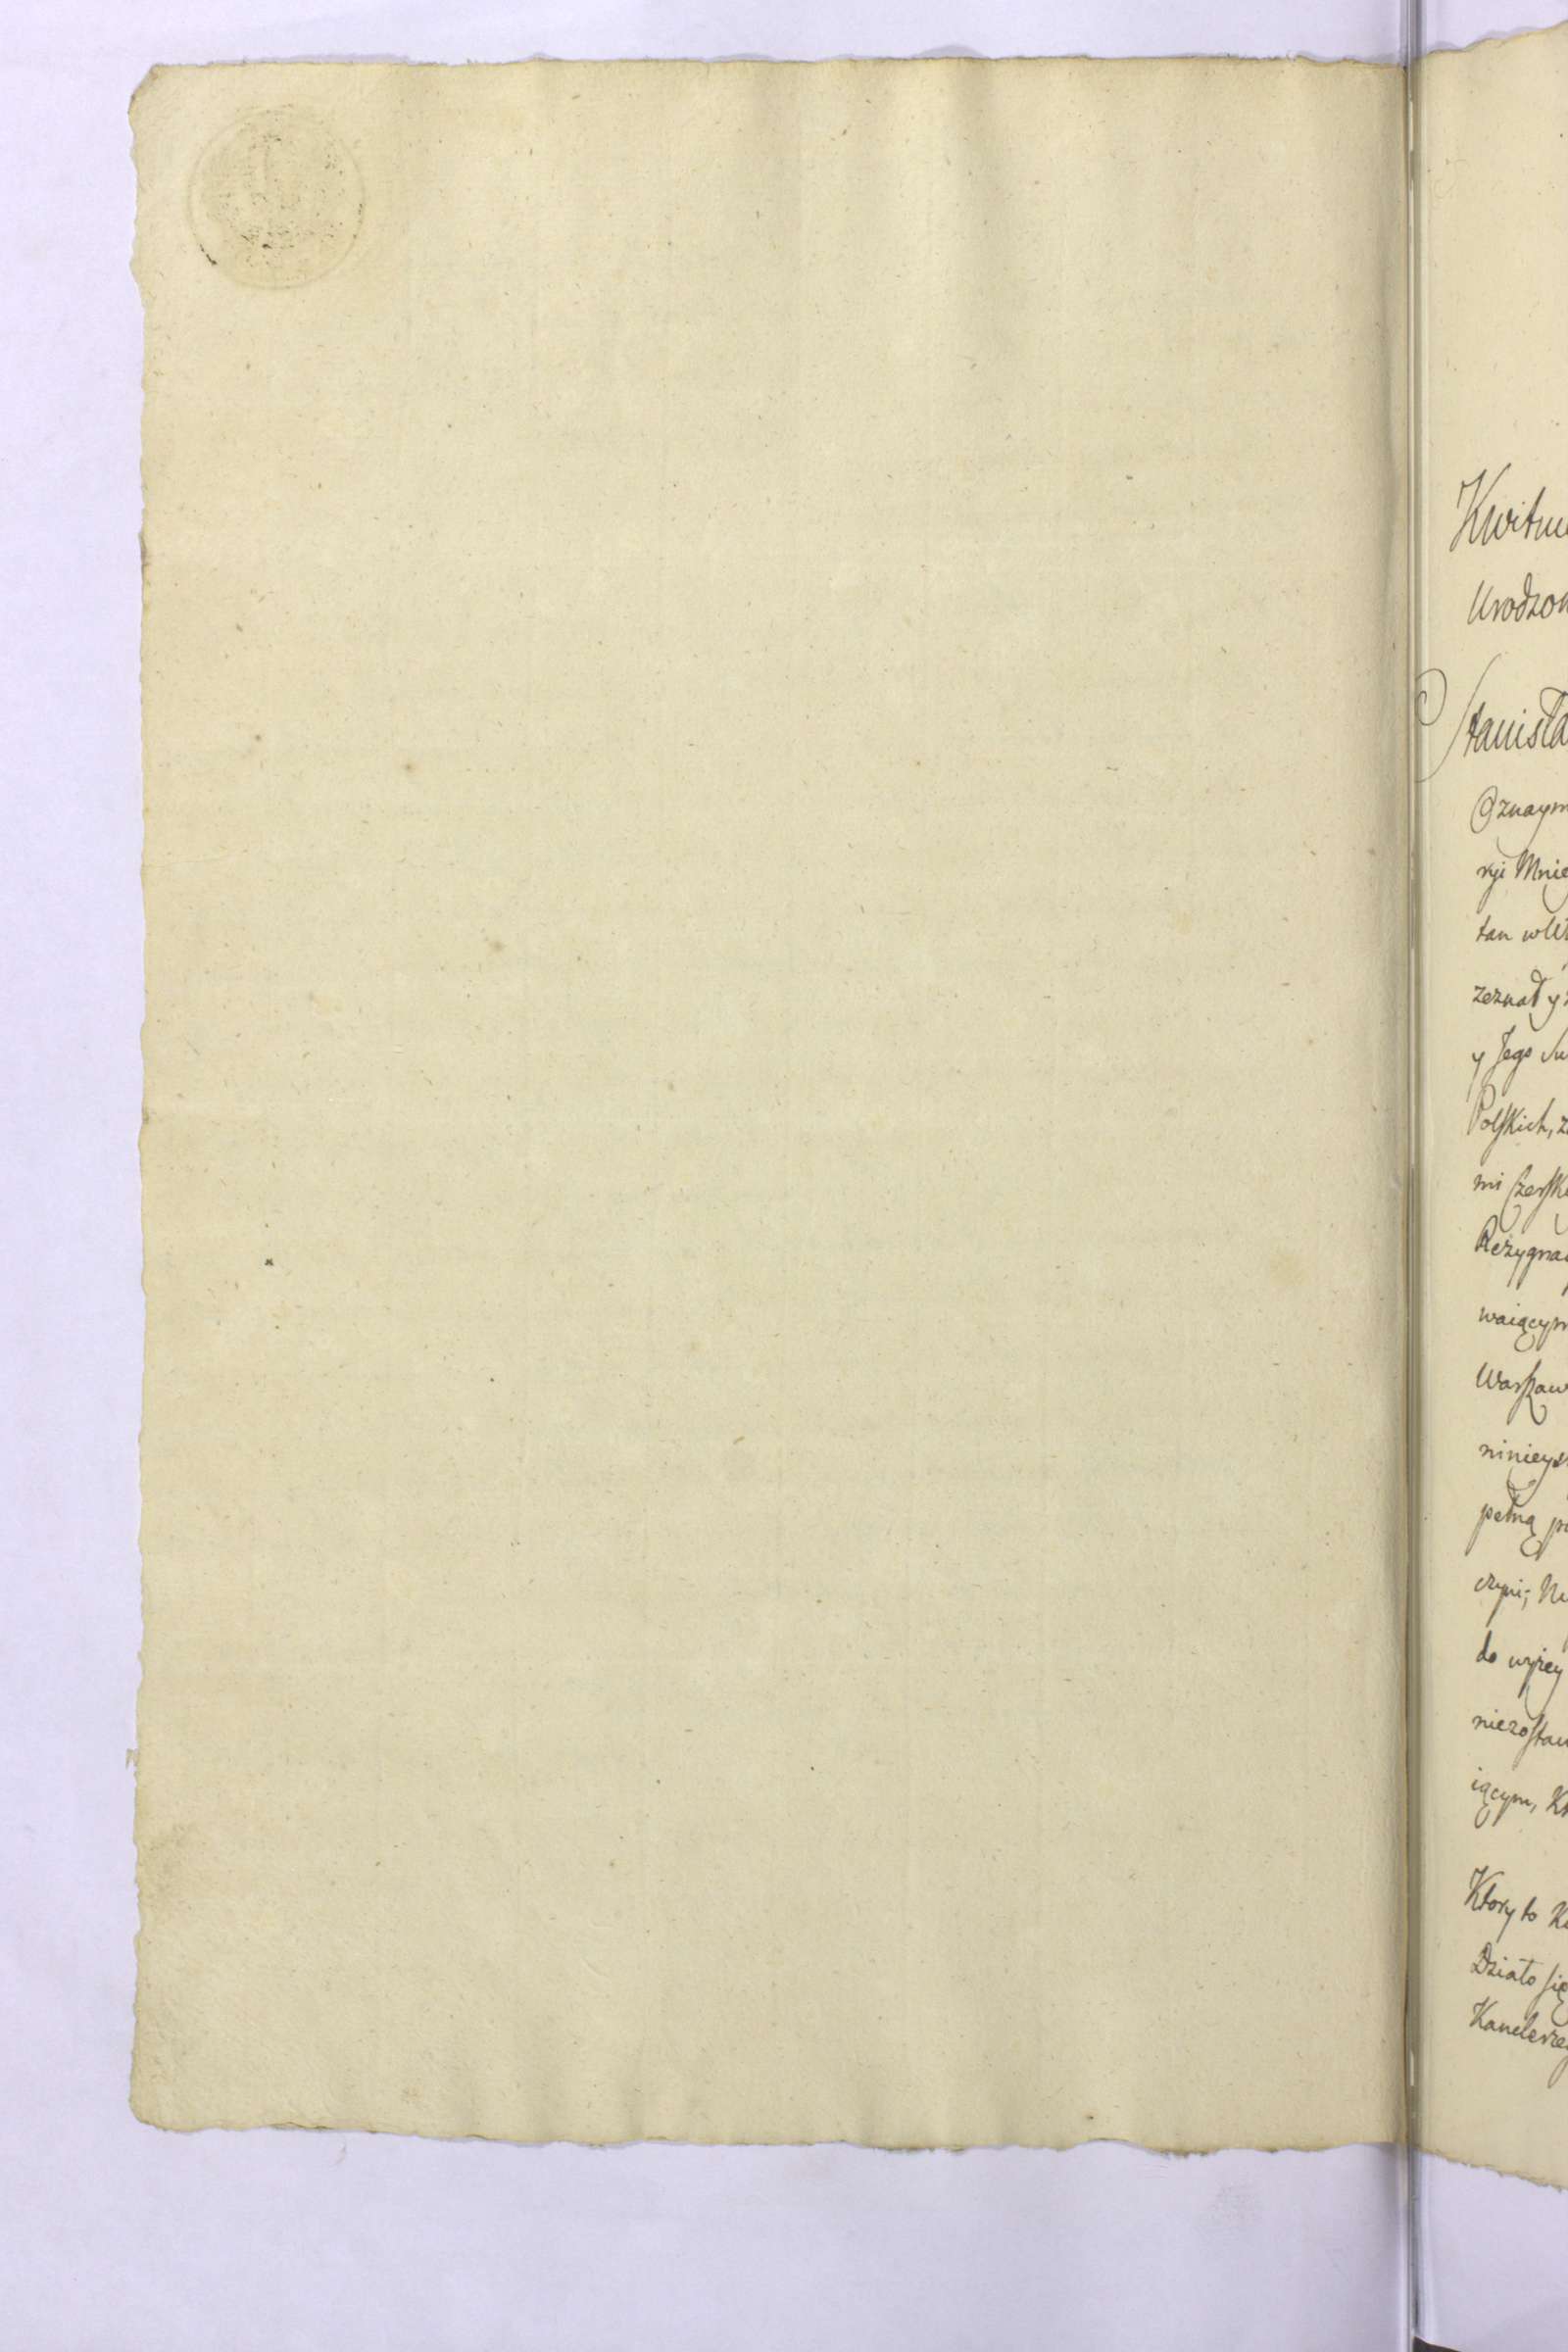 Kwitu
Urodzon
Stanisła
Oznaym
ryi Mnie
tan w W
zeznał y
y Jego Su
Polskich, z
mi Czersk
Rezygna
waiącym
Warszaw
ninieys
pełną p
czyni; Ni
do wyżey
niezostau
iącym, K
Ktory to K
Działo się
Kanclerze